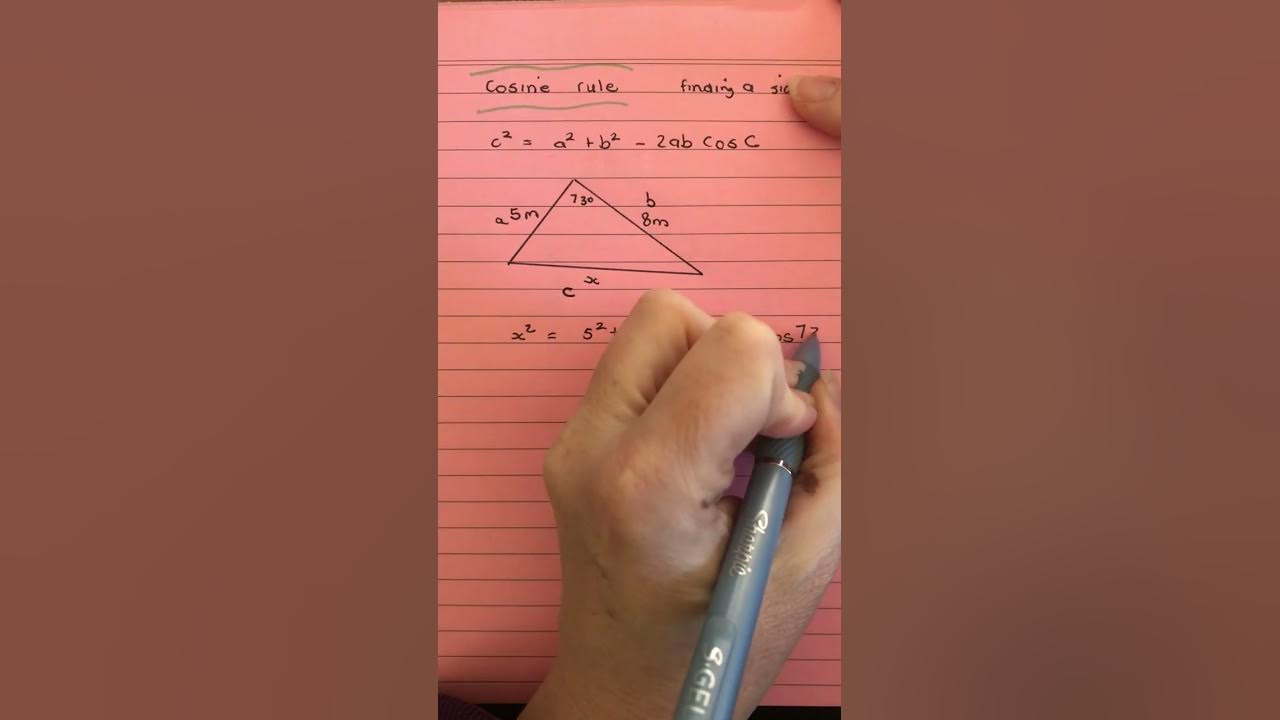 Cosine rule finding a
c² = a² + b² - 2ab Cos C
73°
a 5m
b
8m
x
c
x² = 5² +
Sharpie
S.GEL